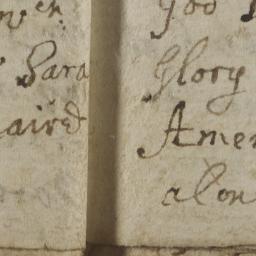 Sara
aired
God
Glory
Amen
alon